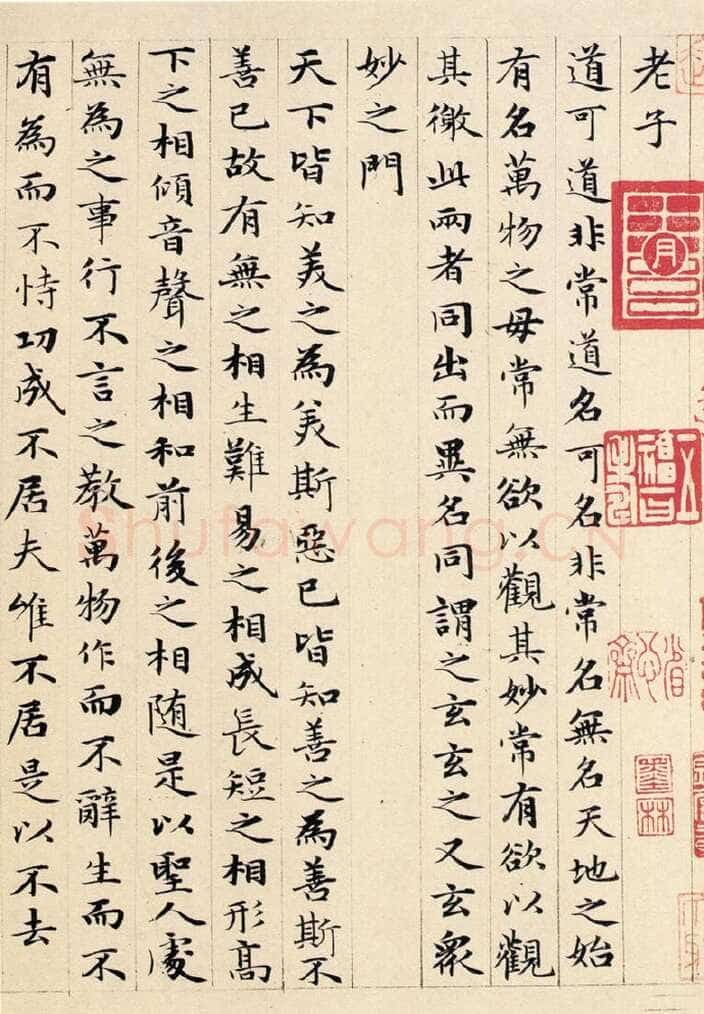 老子
道可道非常道名可名非常名無名天地之始
有名萬物之母常無欲以觀其妙常有欲以觀
其徼此兩者同出而異名同謂之玄玄之又玄衆
妙之門
天下皆知美之為美斯惡已皆知善之為善斯不
善已故有無之相生難易之相成長短之相形高
下之相傾音聲之相和前後之相随是以聖人處
無為之事行不言之教萬物作而不辭生而不
有為而不恃功成不居夫惟不居是以不去
墨林
Shufawang.CN